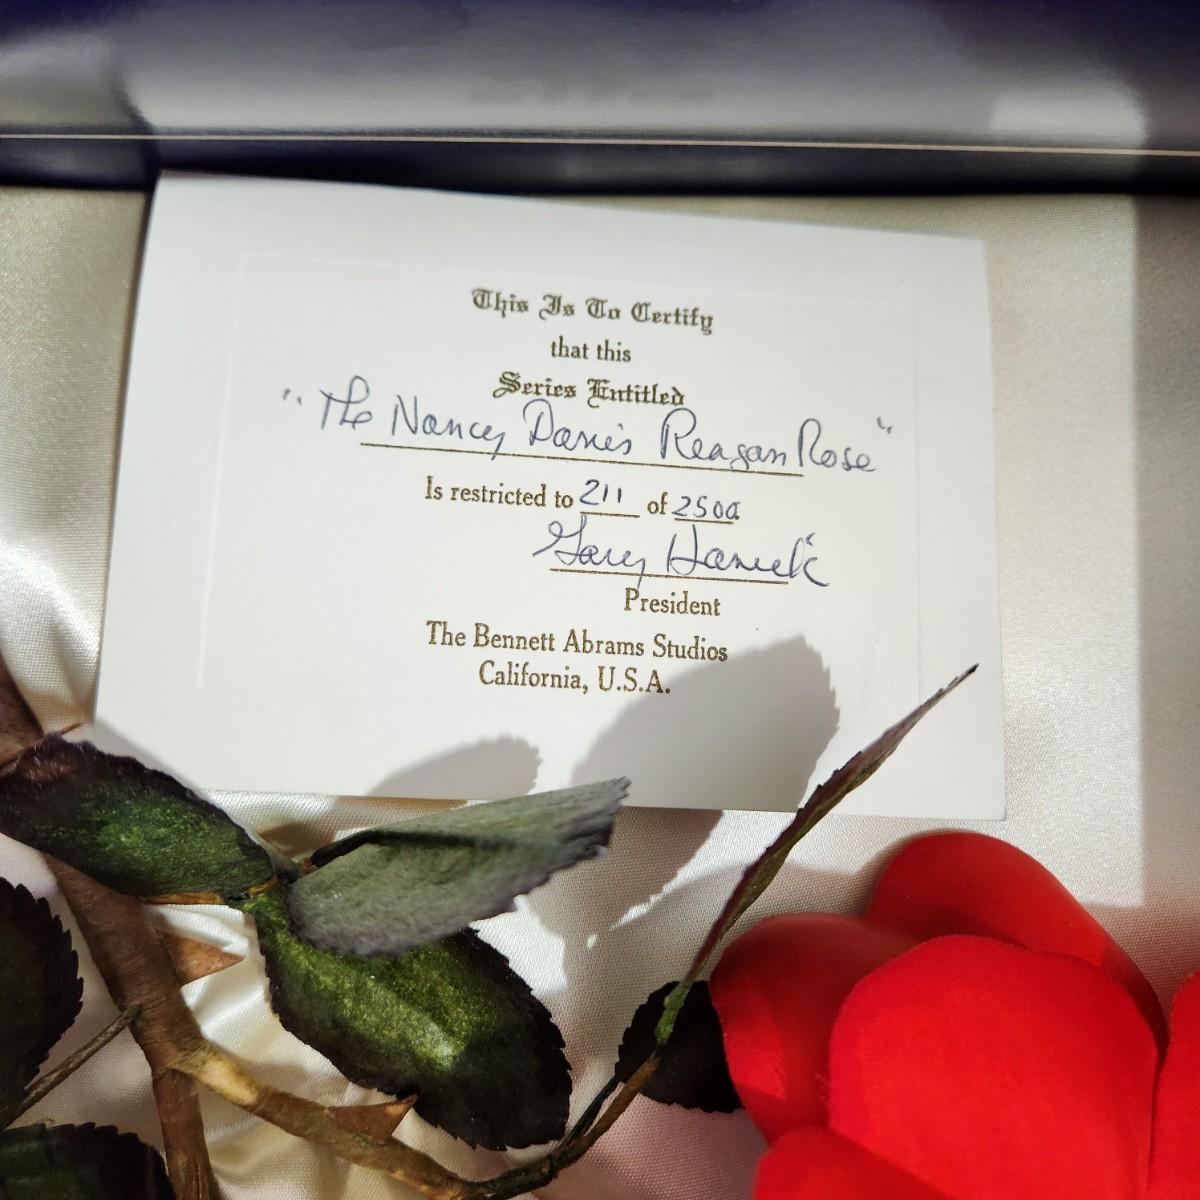 This Is To Certify
that this
Series Entitled
"The Nancy Davis Reagan Rose"
Is restricted to 211 of 2500
Gary
President
The Bennett Abrams Studios
California, U.S.A.